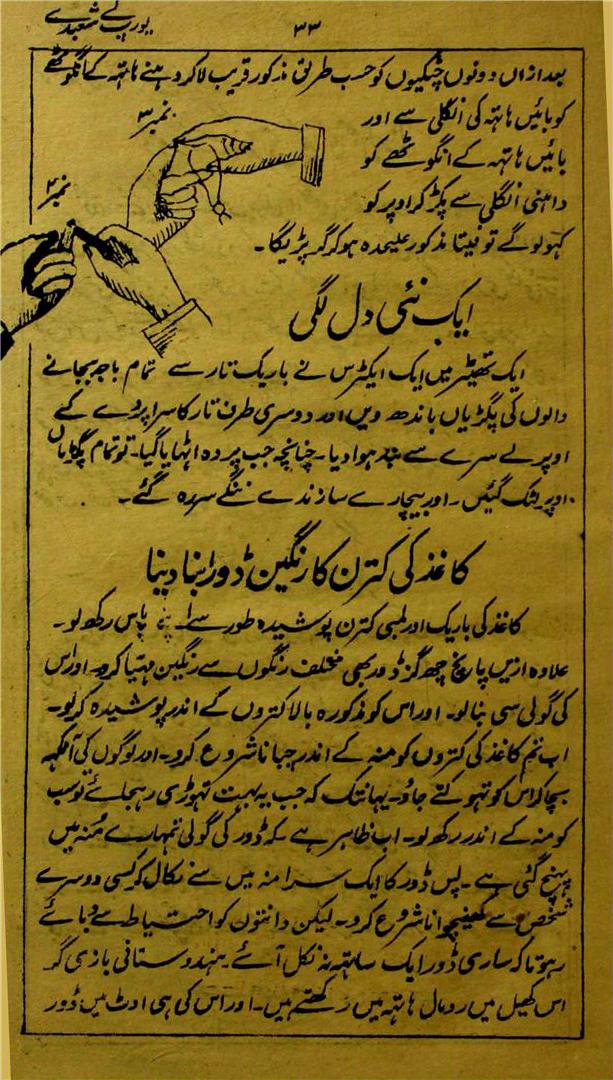 یورپ کے شعبدے
۳۳
بعد ازاں دونوں چٹکیوں کو حسب طریق مذکور قریب لاکر دہنے ہاتہ کے انگوٹھے
کو بائیں ہاتہ کی انگلی سے اور
بائیں ہاتہہ کے انگوٹھے کو
داہنی انگلی سے پکڑ کر اوپر کو
کہولو گے تو فیتا مذکور علیحدہ ہوکر گر پڑیگا۔
نمبر ۳
نمبر ۲
ایک نئی دل لگی
ایک تھیٹر میں ایک ایکٹرس نے باریک تار سے تمام باجہ بجانے
والوں کی پگڑیاں باندھ دیں اور دوسری طرف تار کا سرا پردے کے
اوپر لے سرے سے بندہوا دیا۔ چنانچہ جب پردہ اٹہایا گیا۔ تو تمام پگڑیاں
اوپر لٹک گئیں۔ اور بیچارے سازندے ننگے سر رہ گئے۔
کاغذ کی کترن کا رنگین ڈورا بنا دینا
کاغذ کی باریک اور لمبی کترن پوشیدہ طور سے اپنے پاس رکھ لو۔
علاوہ ازیں پانچ چھ گز ڈور بھی مختلف رنگوں سے رنگین مہیا کرو۔ اور اس
کی گولی سی بنا لو۔ اور اس کو مذکورہ بالا کتروں کے اندر پوشیدہ کر لو۔
اب تم کاغذ کی کتروں کو منہ کے اندر چبانا شروع کرو۔ اور لوگوں کی آنکہہ
بچا کر اس کو تہوکتے جاؤ۔ یہانتک کہ جب یہ بہت تہوڑی رہجائے تو سب
کو منہ کے اندر رکھ لو۔ اب ظاہر ہے کہ ڈور کی گولی تمہارے منہ میں
پہنچ گئی ہے۔ پس ڈور کا ایک سرا منہ میں سے نکال کر کسی دوسرے
شخص سے کھینچوانا شروع کرو۔ لیکن دانتوں کو احتیاط سے دبائے
رہو تاکہ ساری ڈور ایک ساتہہ نہ نکل آئے۔ ہندوستانی بازی گر
اس کھیل میں رومال ہاتہہ میں رکھتے ہیں۔ اور اس کی ہی اوٹ میں ڈور